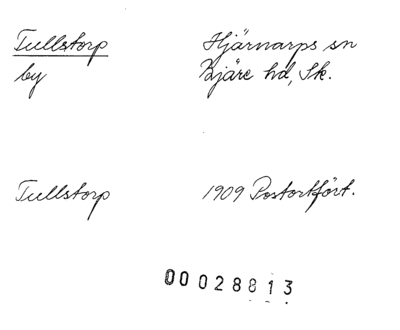 Tullstorp Hjärnarps sn
by Bjäre hd, Sk.
Tullstorp 1909 Postortfört.
00028813